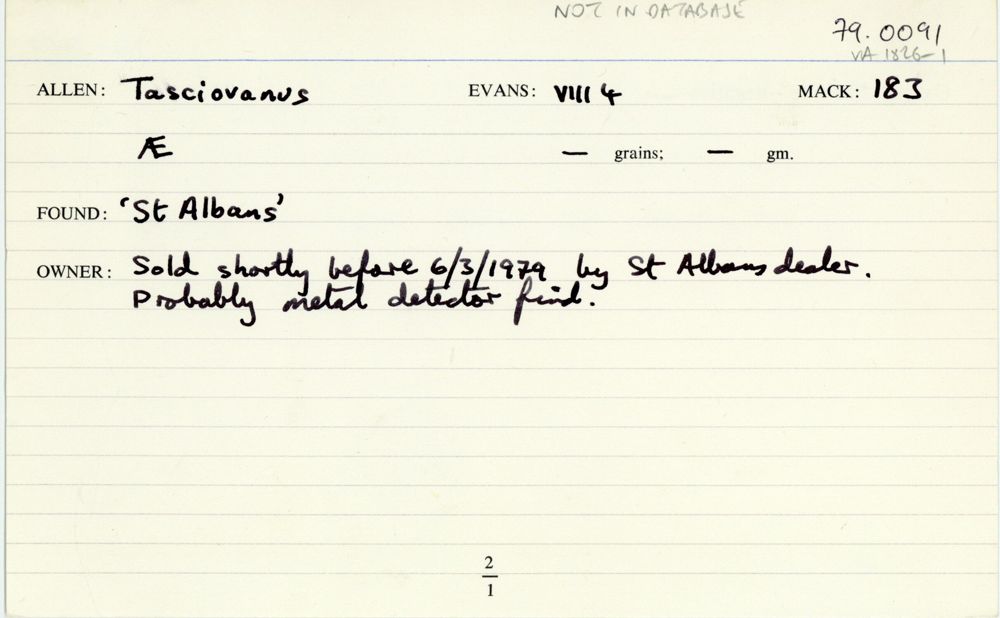 NOT IN DATABASE
79.0091
VA 1826-1
ALLEN: Tasciovanus EVANS: VIII 4 MACK: 183
Æ — grains; — gm.
FOUND: 'St Albans'
OWNER: Sold shortly before 6/3/1979 by St Albans dealer.
Probably metal detector find.
2
1